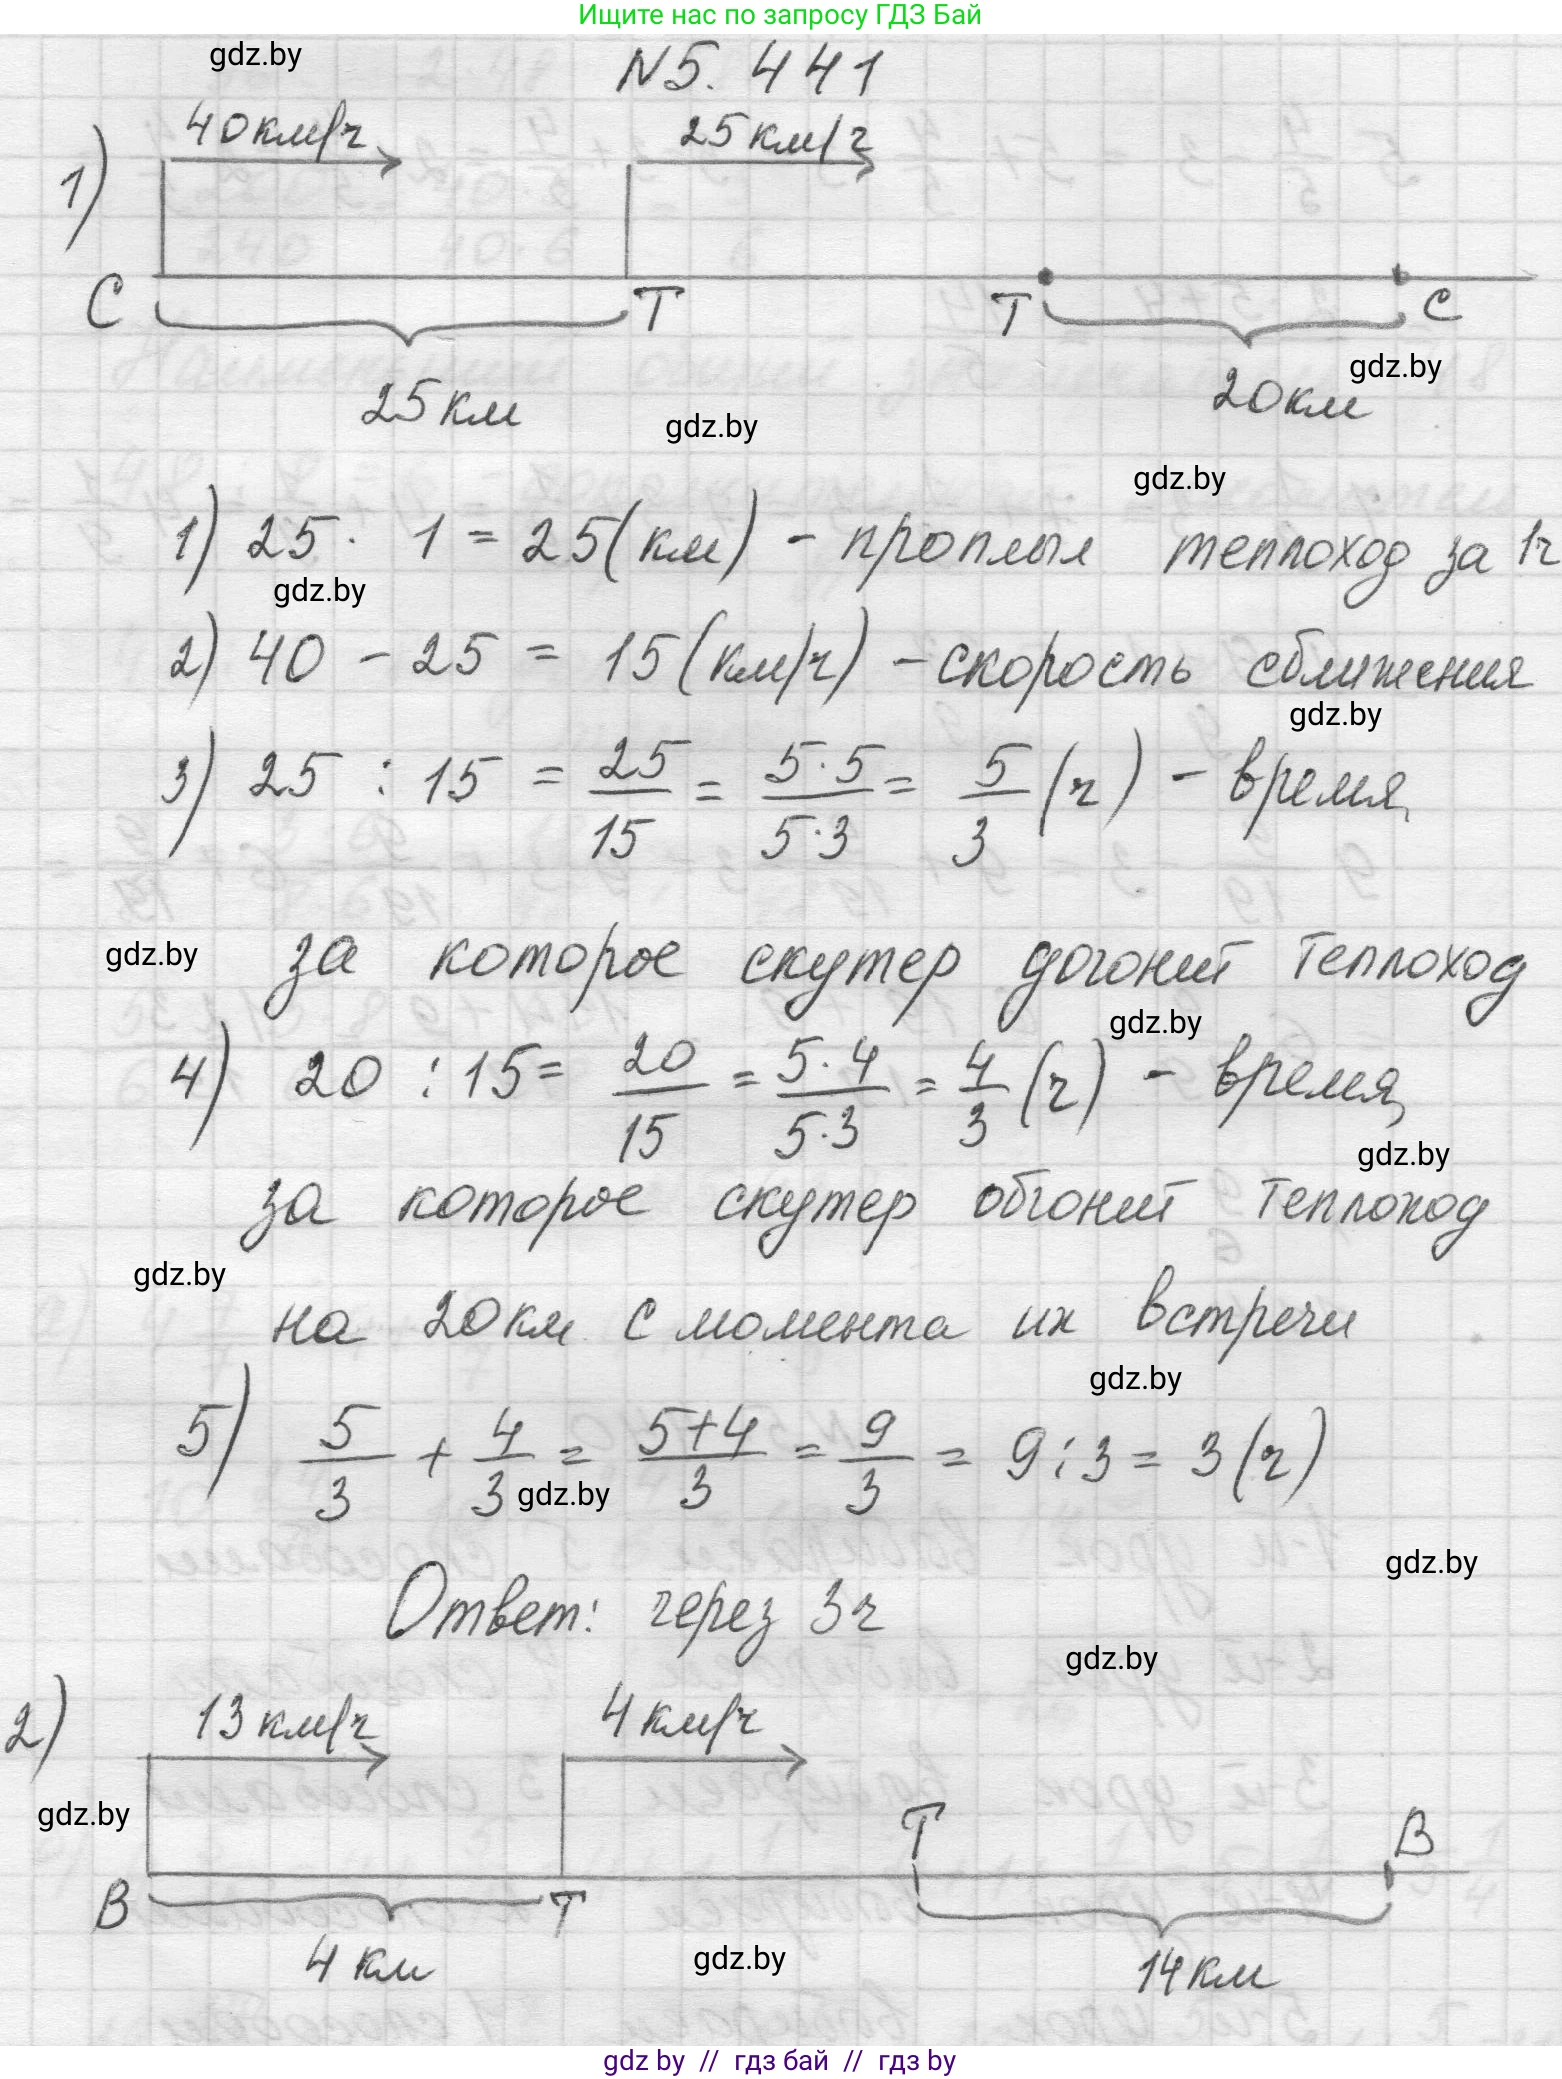 Ищите нас по запросу ГДЗ Бай
gdz.by
N5. 441
1)
40км/ч
25км/ч
С
Т
Т
С
25км
20км
gdz.by
gdz.by
gdz.by
1) 25 · 1 = 25(км) - проплыл теплоход за 1ч
gdz.by
2) 40 - 25 = 15(км/ч) - скорость сближения
gdz.by
3) 25 : 15 = 25/15 = 5·5/5·3 = 5/3 (ч) - время,
gdz.by
за которое скутер догонит теплоход
gdz.by
4) 20 : 15 = 20/15 = 5·4/5·3 = 4/3 (ч) - время,
gdz.by
за которое скутер обгонит теплоход
gdz.by
на 20км с момента их встречи
gdz.by
5) 5/3 + 4/3 = 5+4/3 = 9/3 = 9:3 = 3(ч)
gdz.by
gdz.by
Ответ: через 3ч
gdz.by
2)
13км/ч
4км/ч
gdz.by
Т
В
В
Т
4км
gdz.by
14км
gdz by // гдз бай // гдз by